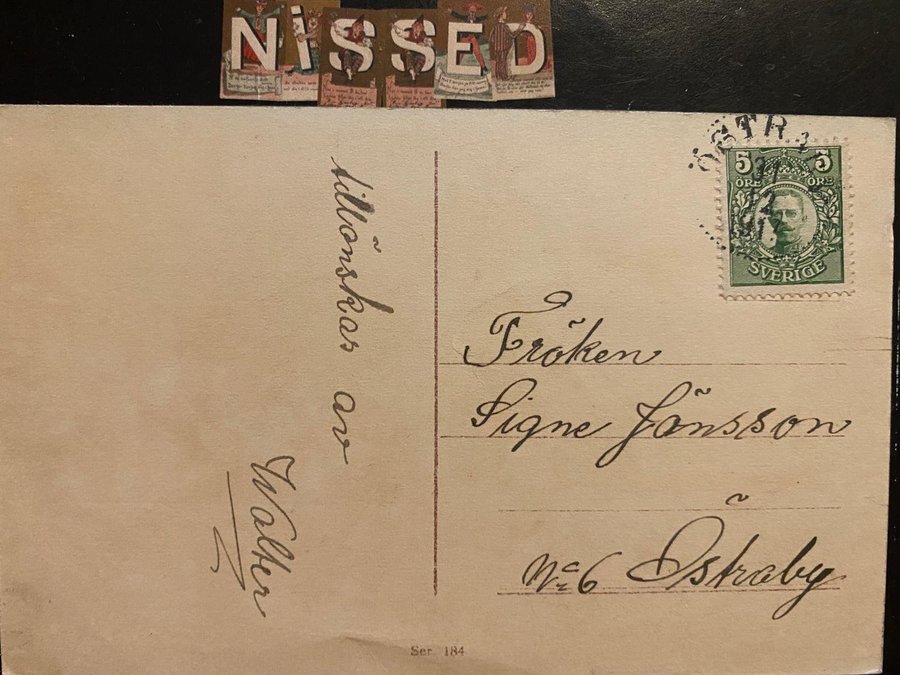 NISSED
tillönskas av
Walter
ÖSTRA
5 5
ÖRE ÖRE
SVERIGE
Fröken
Signe Jönsson
No 6 Östraby
Ser. 184